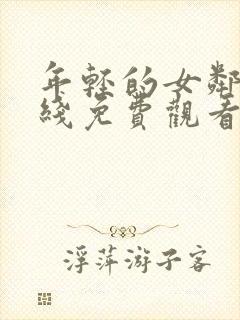 年輕的女鄰
綫免費觀看
浮萍游子客